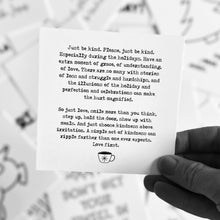 Just be kind. Please, just be kind.
Especially during the holidays. Have an
extra moment of grace, of understanding,
of love. There are so many with stories
of loss and struggle and hardships, and
the illusions of the holiday and
perfection and celebrations can make
the hurt magnified.
So just love, smile more than you think,
step up, hold the door, show up with
meals. And just choose kindness above
irritation. A simple act of kindness can
ripple farther than one ever expects.
Love first.